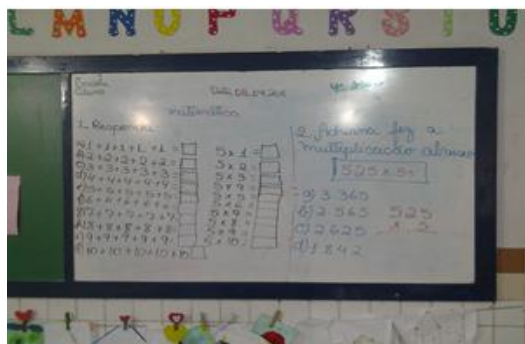 L M N O P Q R S T U
Escola
matemática
1. Responda
a) 1+1+1+1+1=
b) 2+2+2+2+2=
c) 3+3+3+3+3=
d) 4+4+4+4+4=
e) 5+5+5+5+5=
f) 6+6+6+6+6=
g) 7+7+7+7+7=
h) 8+8+8+8+8=
i) 9+9+9+9+9=
j) 10+10+10+10+10
5x1=
5x2=
5x3=
5x4=
5x5=
5x6=
5x7=
5x8=
5x9=
5x10=
2. Adriana fez a
multiplicação abaixo
525x5=
a) 3.365
b) 2.565
c) 2.625
d) 1.842
525
x 5